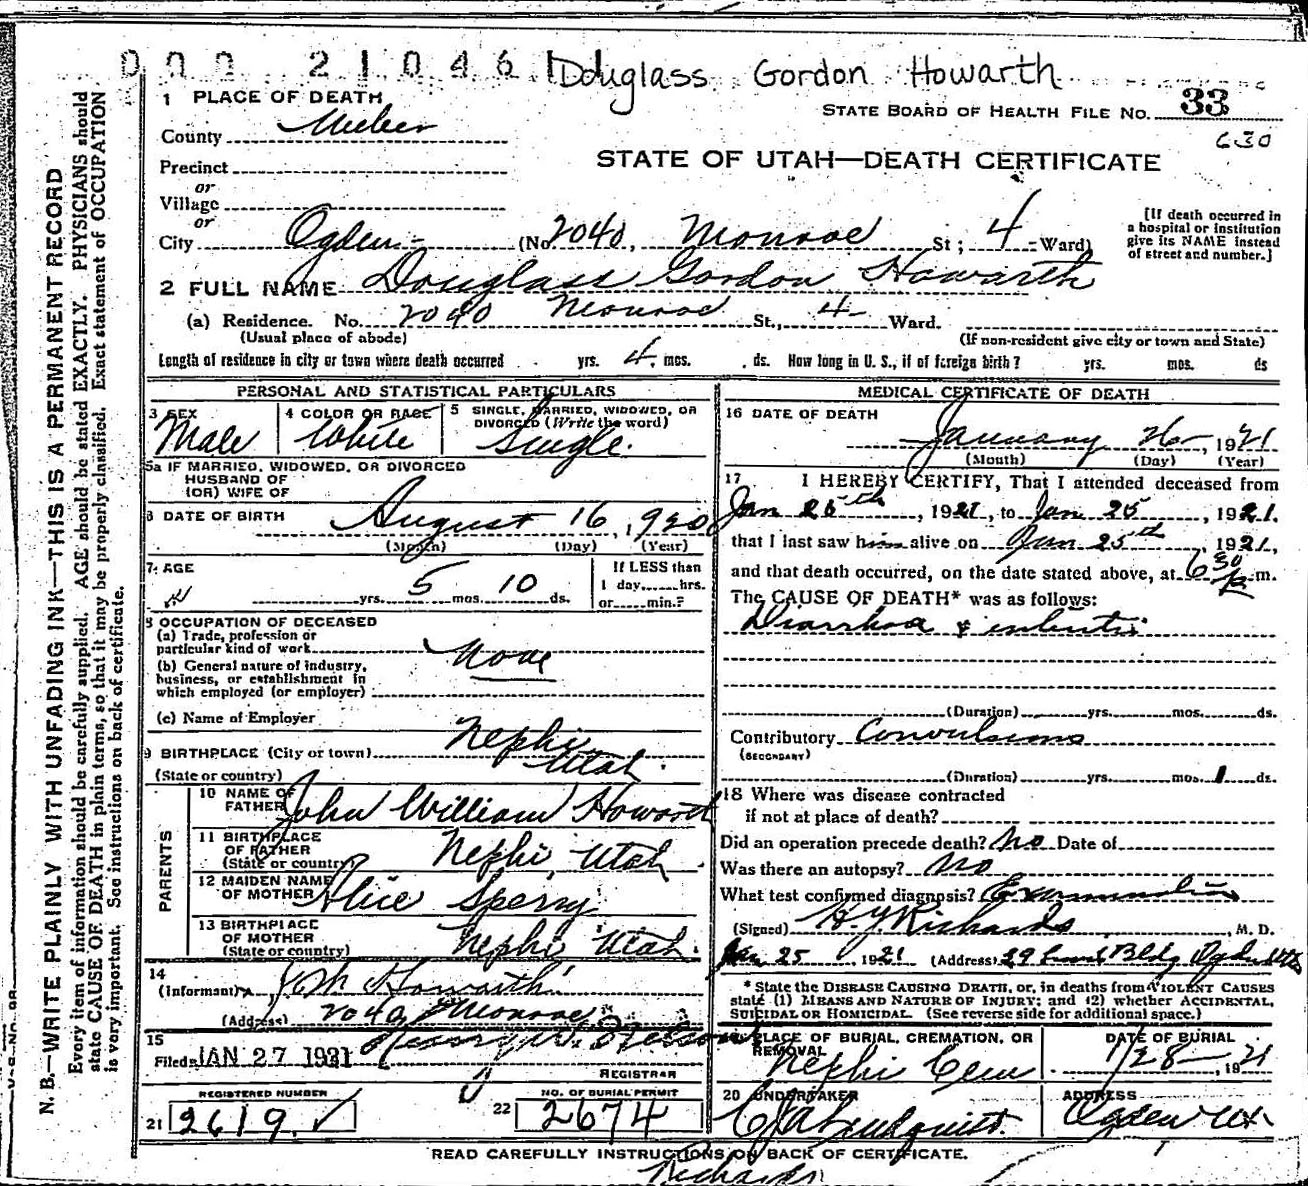 000 21046 Douglass Gordon Howarth
1 PLACE OF DEATH
STATE BOARD OF HEALTH FILE NO. 33
County Weber
630
Precinct
STATE OF UTAH—DEATH CERTIFICATE
or
Village
or
City Ogden (No 2040, Monroe St; 4 Ward)
[If death occurred in
a hospital or institution
give its NAME instead
of street and number.]
2 FULL NAME Douglass Gordon Howarth
(a) Residence. No. 2040 Monroe St., 4 Ward.
(Usual place of abode) (If non-resident give city or town and State)
Length of residence in city or town where death occurred yrs. 4 mos. ds. How long in U. S., if of foreign birth? yrs. mos. ds
PERSONAL AND STATISTICAL PARTICULARS
3 SEX
Male
4 COLOR OR RACE
White
5 SINGLE, MARRIED, WIDOWED, OR
DIVORCED (Write the word)
Single.
5a IF MARRIED, WIDOWED, OR DIVORCED
HUSBAND OF
(OR) WIFE OF
6 DATE OF BIRTH August 16, 1920
(Month) (Day) (Year)
7. AGE
yrs. 5 mos. 10 ds.
If LESS than
1 day, hrs.
or min.?
8 OCCUPATION OF DECEASED
(a) Trade, profession or
particular kind of work None
(b) General nature of industry,
business, or establishment in
which employed (or employer)
(c) Name of Employer
9 BIRTHPLACE (City or town) Nephi
(State or country) Utah.
PARENTS
10 NAME OF
FATHER John William Howarth
11 BIRTHPLACE
OF FATHER
(State or country) Nephi, Utah
12 MAIDEN NAME
OF MOTHER Alice Sperry
13 BIRTHPLACE
OF MOTHER
(State or country) Nephi Utah.
14
(Informant) J W Howarth
(Address) 2040 Monroe
15
Filed JAN 27 1921
REGISTRAR
REGISTERED NUMBER
21 2619. ✓
NO. OF BURIAL PERMIT
22 2674
MEDICAL CERTIFICATE OF DEATH
16 DATE OF DEATH
January 26, 1921
(Month) (Day) (Year)
17 I HEREBY CERTIFY, That I attended deceased from
Jan 25th, 1921, to Jan 25, 1921.
that I last saw him alive on Jan 25th, 1921,
and that death occurred, on the date stated above, at 6 30 p m.
The CAUSE OF DEATH* was as follows:
Diarrhoea &
(Duration) yrs. mos. ds.
Contributory Convulsions
(SECONDARY)
(Duration) yrs. mos. 1 ds.
18 Where was disease contracted
if not at place of death?
Did an operation precede death? No Date of
Was there an autopsy? No
What test confirmed diagnosis? Examination
(Signed) H. Y. Richards, M. D.
Jan 25, 1921 (Address) 29 Bldg Ogden Utah
* State the DISEASE CAUSING DEATH, or, in deaths from VIOLENT CAUSES
state (1) MEANS AND NATURE OF INJURY; and (2) whether ACCIDENTAL,
SUICIDAL OR HOMICIDAL. (See reverse side for additional space.)
19 PLACE OF BURIAL, CREMATION, OR
REMOVAL
Nephi Cem
DATE OF BURIAL
1/28, 1921
20 UNDERTAKER
C J A Lindquist.
ADDRESS
Ogden Ut
READ CAREFULLY INSTRUCTIONS ON BACK OF CERTIFICATE.
Richards
N. B.—WRITE PLAINLY WITH UNFADING INK—THIS IS A PERMANENT RECORD
Every item of information should be carefully supplied. AGE should be stated EXACTLY. PHYSICIANS should
state CAUSE OF DEATH in plain terms, so that it may be properly classified. Exact statement of OCCUPATION
is very important. See instructions on back of certificate.